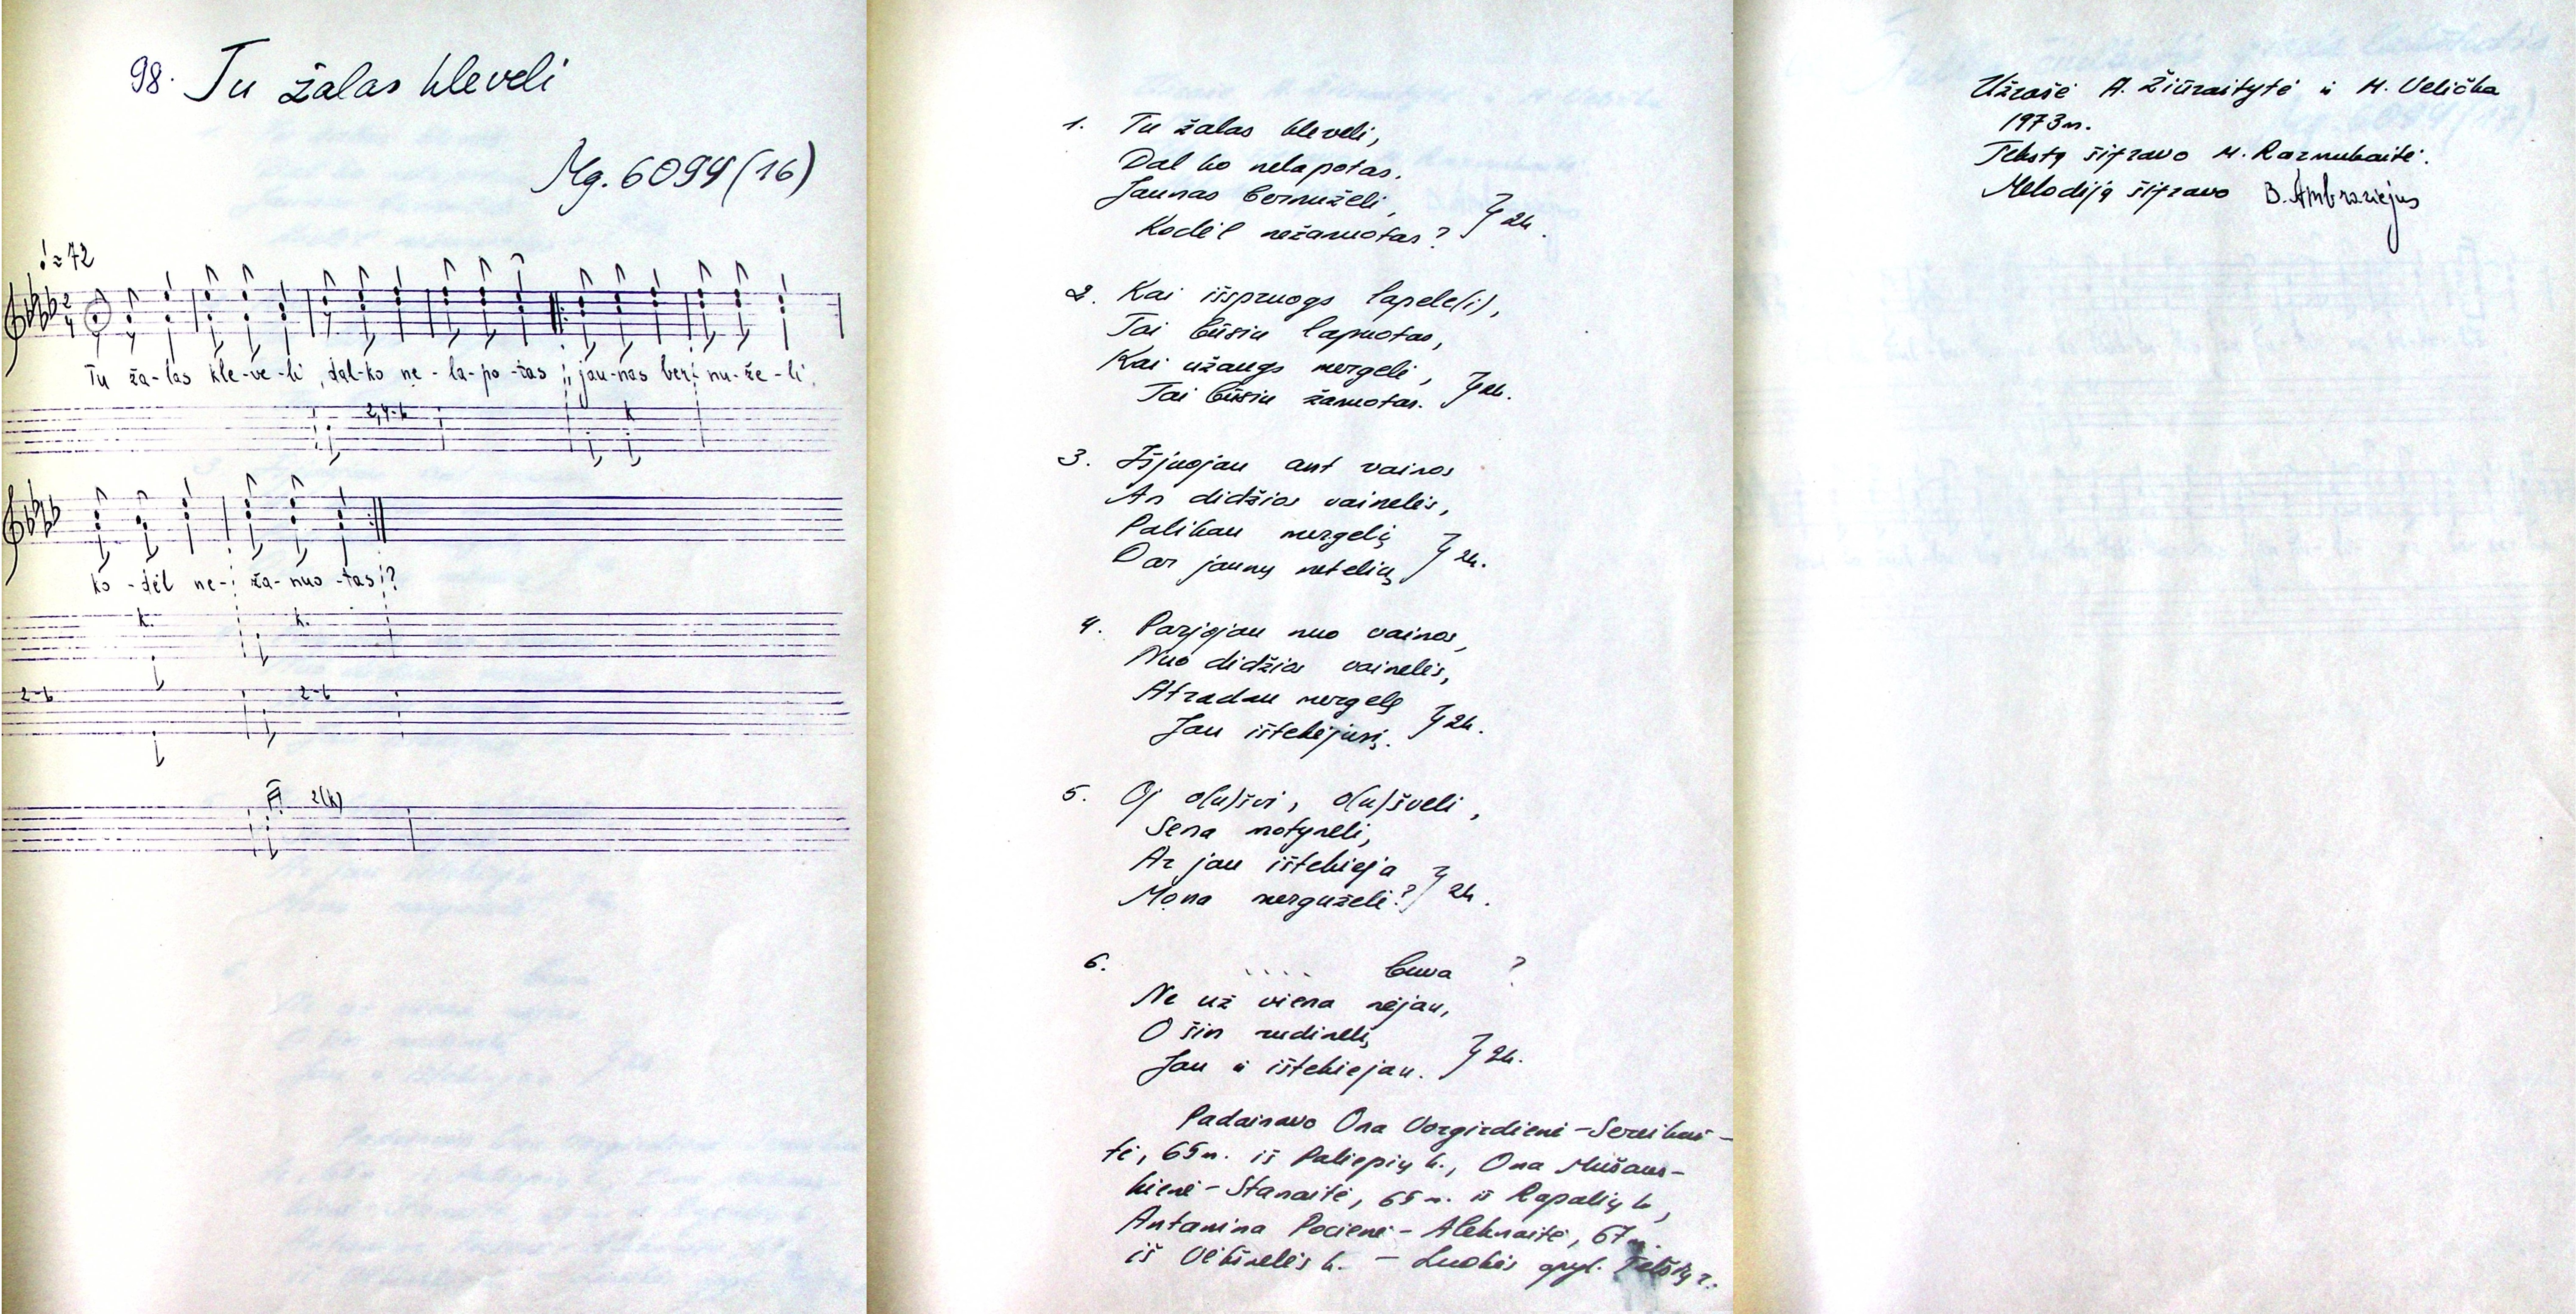 98. Tu žalas kleveli
Mg. 6094 (16)
♩ = 72
Tu ža-las kle-ve-li, dal-ko ne-la-po-tas jau-nas ber-nu-že-li,
2,4-6 k
ko-dėl ne-ža-nuo-tas?
k. k.
2-6 2-6
2(k)
1. Tu žalas kleveli,
Dal ko nelapotas.
Jaunas bernuželi,
Kodėl nežanuotas? } 2k.
2. Kai išspruogs lapele(i),
Tai būsiu lapuotas,
Kai užaugs mergeli,
Tai būsiu žanuotas. } 2k.
3. Išjuojau ant vainos
An didžios vainelės,
Palikau mergelį
Dar jaunų metelių } 2k.
4. Parjojau nuo vainos,
Nuo didžios vainelės,
Atradau mergelę
Jau ištekėjusį. } 2k.
5. Oj o(u)švi, o(u)šveli,
Sena motyneli,
Ar jau ištekieja
Mona merguželi? } 2k.
6. .... buva ?
Ne už viena nėjau,
O šin rudinelį
Jau ir ištekiejau. } 2k.
Padainavo Ona Vorgirdienė - Sereikai-
tė, 65 m. iš Paliepių k., Ona Mušaus-
kienė - Stanaitė, 65 m. iš Rapalių k.,
Antanina Pocienė - Aleknaitė, 67 m.
iš Viekšnelės k. - Luokės apyl. Telšių r.
Užrašė A. Žiūraitytė ir M. Velička
1973 m.
Tekstą šifravo M. Razmukaitė.
Melodiją šifravo B. Ambraziejus